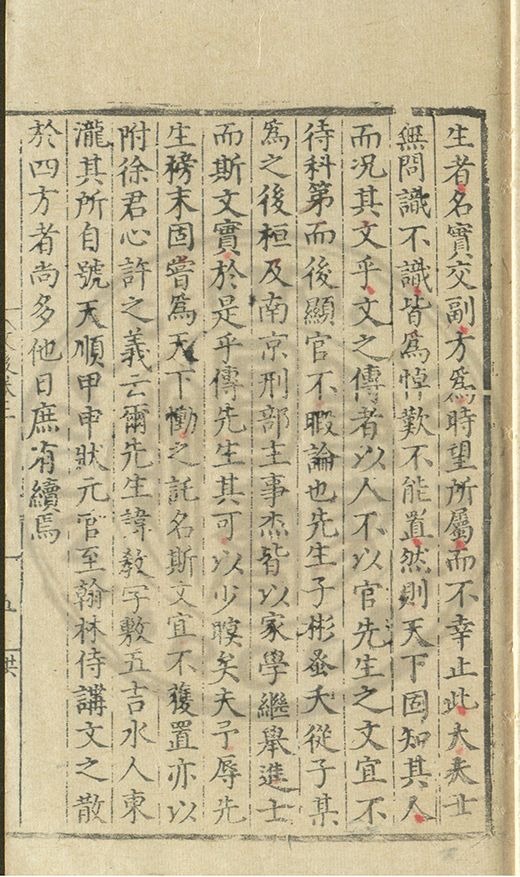 生者名實交副方爲時望所屬而不幸止此大夫士
無問識不識皆爲悼歎不能置然則天下固知其人
而况其文乎文之傳者以人不以官先生之文宜不
待科第而後顯官不暇論也先生子彬蚤夭從子某
爲之後桓及南京刑部主事杰皆以家學繼舉進士
而斯文實於是乎傳先生其可以少瞑矣夫予辱先
生榜末固嘗爲天下慟之託名斯文宜不獲置亦以
附徐君心許之義云爾先生諱敎字敷五吉水人東
瀧其所自號天順甲申狀元官至翰林侍講文之散
於四方者尚多他日庶有續焉
五